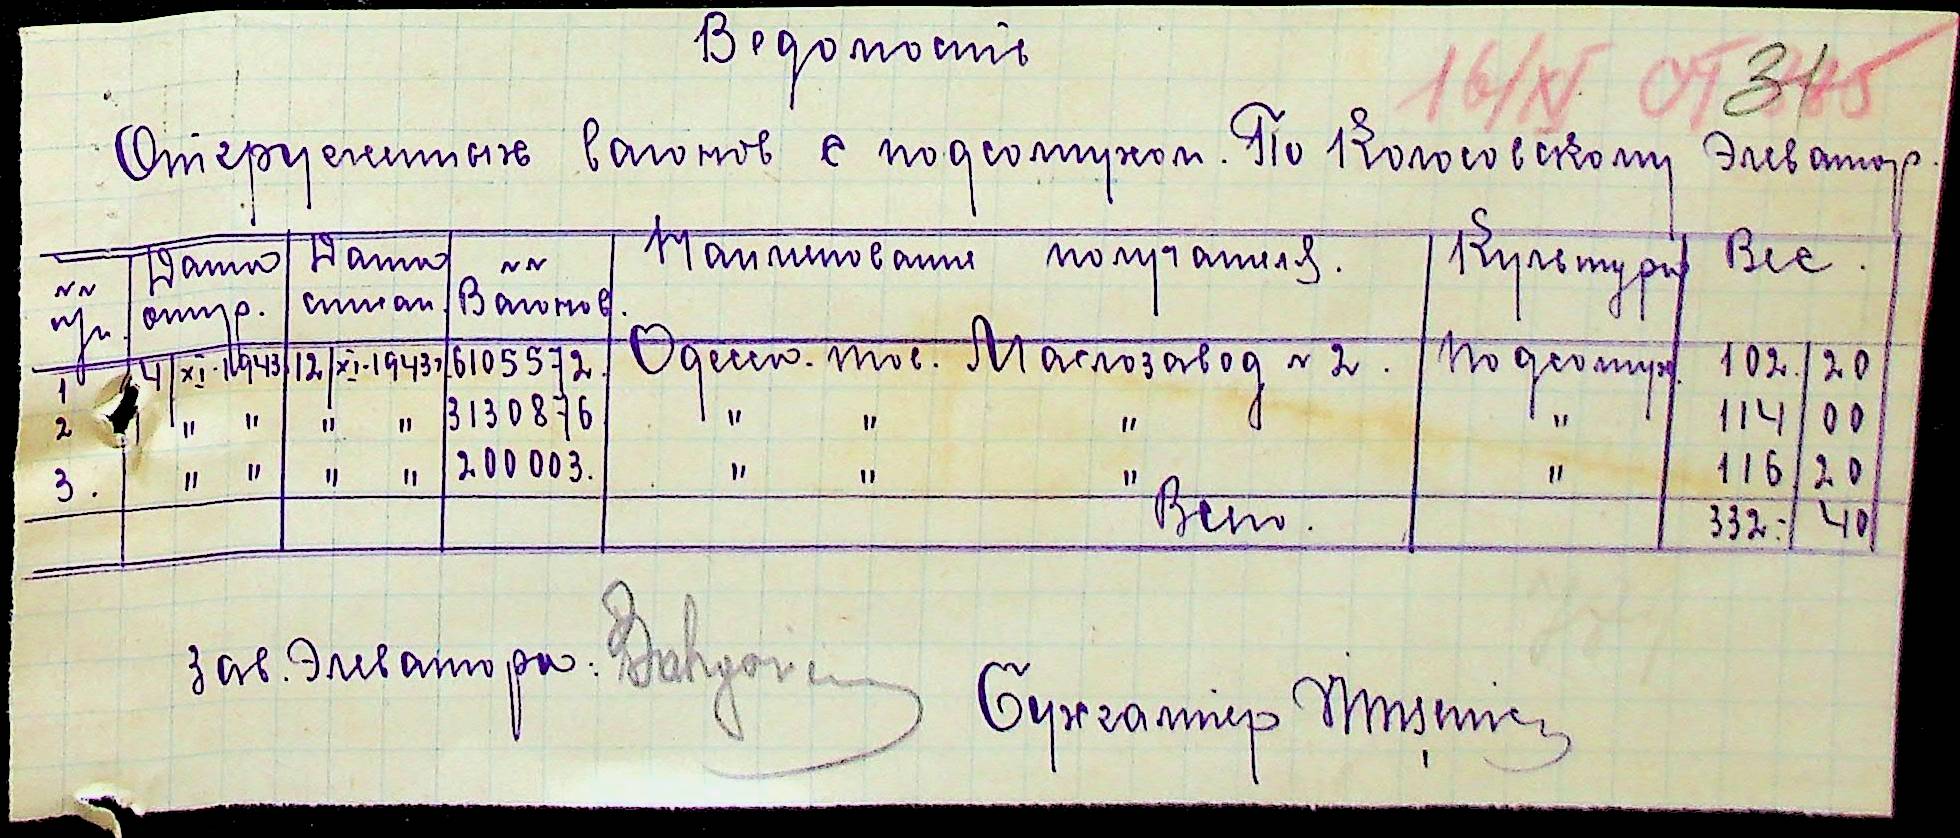 Ведомость
16/XI От 31
Отгруженных вагонов с подсолнухом. По Колосовскому Элеватор.
№№ п/п. Дата отгр. Дата стан. №№ Вагонов. Наименование получателя. Культура Вес.
1 4/XI-1943 12/XI-1943г. 6105572. Одесск. тов. Маслозавод №2. Подсолнух. 102. 20
2 " " " " 3130876 " " " " 114 00
3. " " " " 200003. " " " " 116 20
Всего. 332. 40
Зав. Элеватора:
Бухгалтер